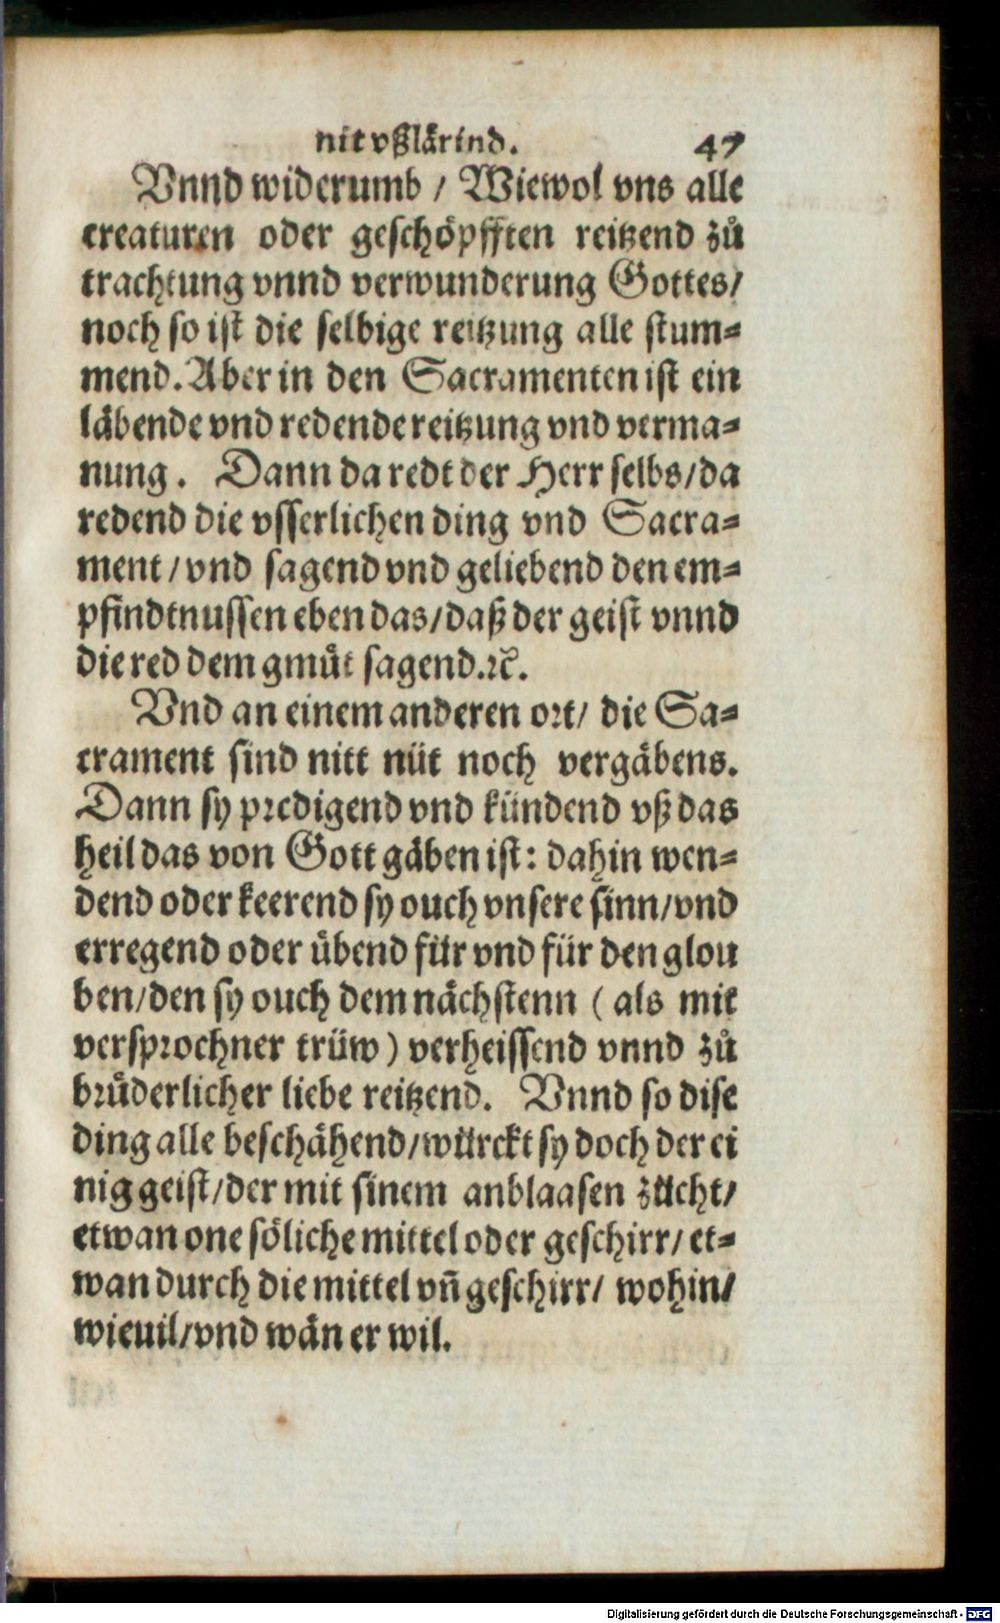 nit vßlärind. 47
Vnnd widerumb / Wiewol vns alle
creaturen oder geschöpfften reitzend zů
trachtung vnnd verwunderung Gottes/
noch so ist die selbige reitzung alle stum⸗
mend. Aber in den Sacramenten ist ein
läbende vnd redende reitzung vnd verma⸗
nung. Dann da redt der Herr selbs/da
redend die vsserlichen ding vnd Sacra⸗
ment / vnd sagend vnd geliebend den em⸗
pfindtnussen eben das/daß der geist vnnd
die red dem gmůt sagend.ꝛc.
Vnd an einem anderen ort/ die Sa⸗
crament sind nitt nüt noch vergäbens.
Dann sy predigend vnd kündend vß das
heil das von Gott gäben ist: dahin wen⸗
dend oder keerend sy ouch vnsere sinn/vnd
erregend oder übend für vnd für den glou
ben/den sy ouch dem nächstenn ( als mit
versprochner trüw ) verheissend vnnd zů
brůderlicher liebe reitzend. Vnnd so dise
ding alle beschähend/würckt sy doch der ei
nig geist/der mit sinem anblaasen zücht/
etwan one söliche mittel oder geschirr/ et⸗
wan durch die mittel vñ geschirr/ wohin/
wieuil/vnd wän er wil.
Digitalisierung gefördert durch die Deutsche Forschungsgemeinschaft - DFG